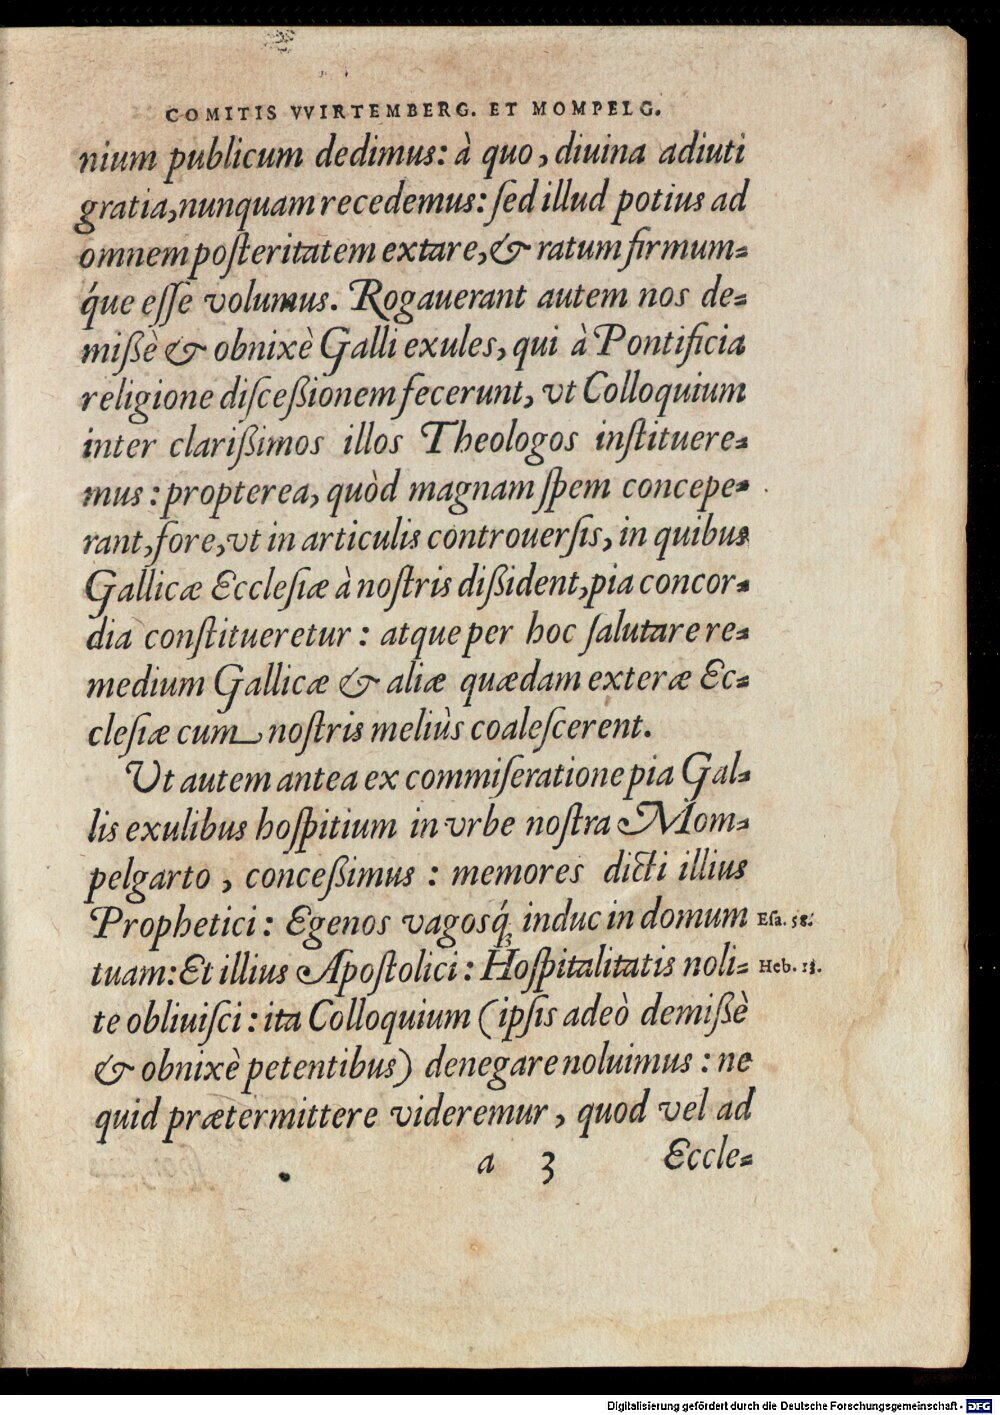 COMITIS VVIRTEMBERG. ET MOMPELG.
nium publicum dedimus: à quo, diuina adiuti
gratia, nunquam recedemus: ſed illud potius ad
omnem poſteritatem extare, & ratum firmum⸗
q́ue eſſe volumus. Rogauerant autem nos de⸗
mißè & obnixè Galli exules, qui à Pontificia
religione diſceßionem fecerunt, vt Colloquium
inter clarißimos illos Theologos inſtituere⸗
mus: propterea, quòd magnam ſpem concepe⸗
rant, fore, vt in articulis controuerſis, in quibus
Gallicæ Eccleſiæ à noſtris dißident, pia concor⸗
dia conſtitueretur: atque per hoc ſalutare re⸗
medium Gallicæ & aliæ quædam exteræ Ec⸗
cleſiæ cum noſtris meliùs coaleſcerent.
Vt autem antea ex commiſeratione pia Gal⸗
lis exulibus hoſpitium in vrbe noſtra Mom⸗
pelgarto, conceßimus: memores dicti illius
Prophetici: Egenos vagosq́; induc in domum Eſa. 58.
tuam: Et illius Apoſtolici: Hoſpitalitatis noli⸗ Heb. 13.
te obliuiſci: ita Colloquium (ipſis adeò demißè
& obnixè petentibus) denegare noluimus: ne
quid prætermittere videremur, quod vel ad
a 3 Eccle⸗
Digitalisierung gefördert durch die Deutsche Forschungsgemeinschaft - DFG